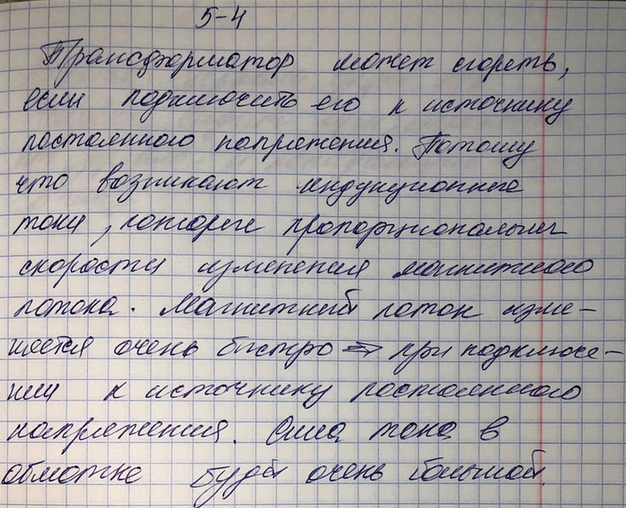 5-4
Трансформатор может сгореть,
если подключить его к источнику
постоянного напряжения. Потому
что возникают индукционные
токи, которые пропорциональны
скорости изменения магнитного
потока. Магнитный поток изме-
няется очень быстро => при подключе-
нии к источнику постоянного
напряжения. Сила тока в
обмотке будет очень большой.